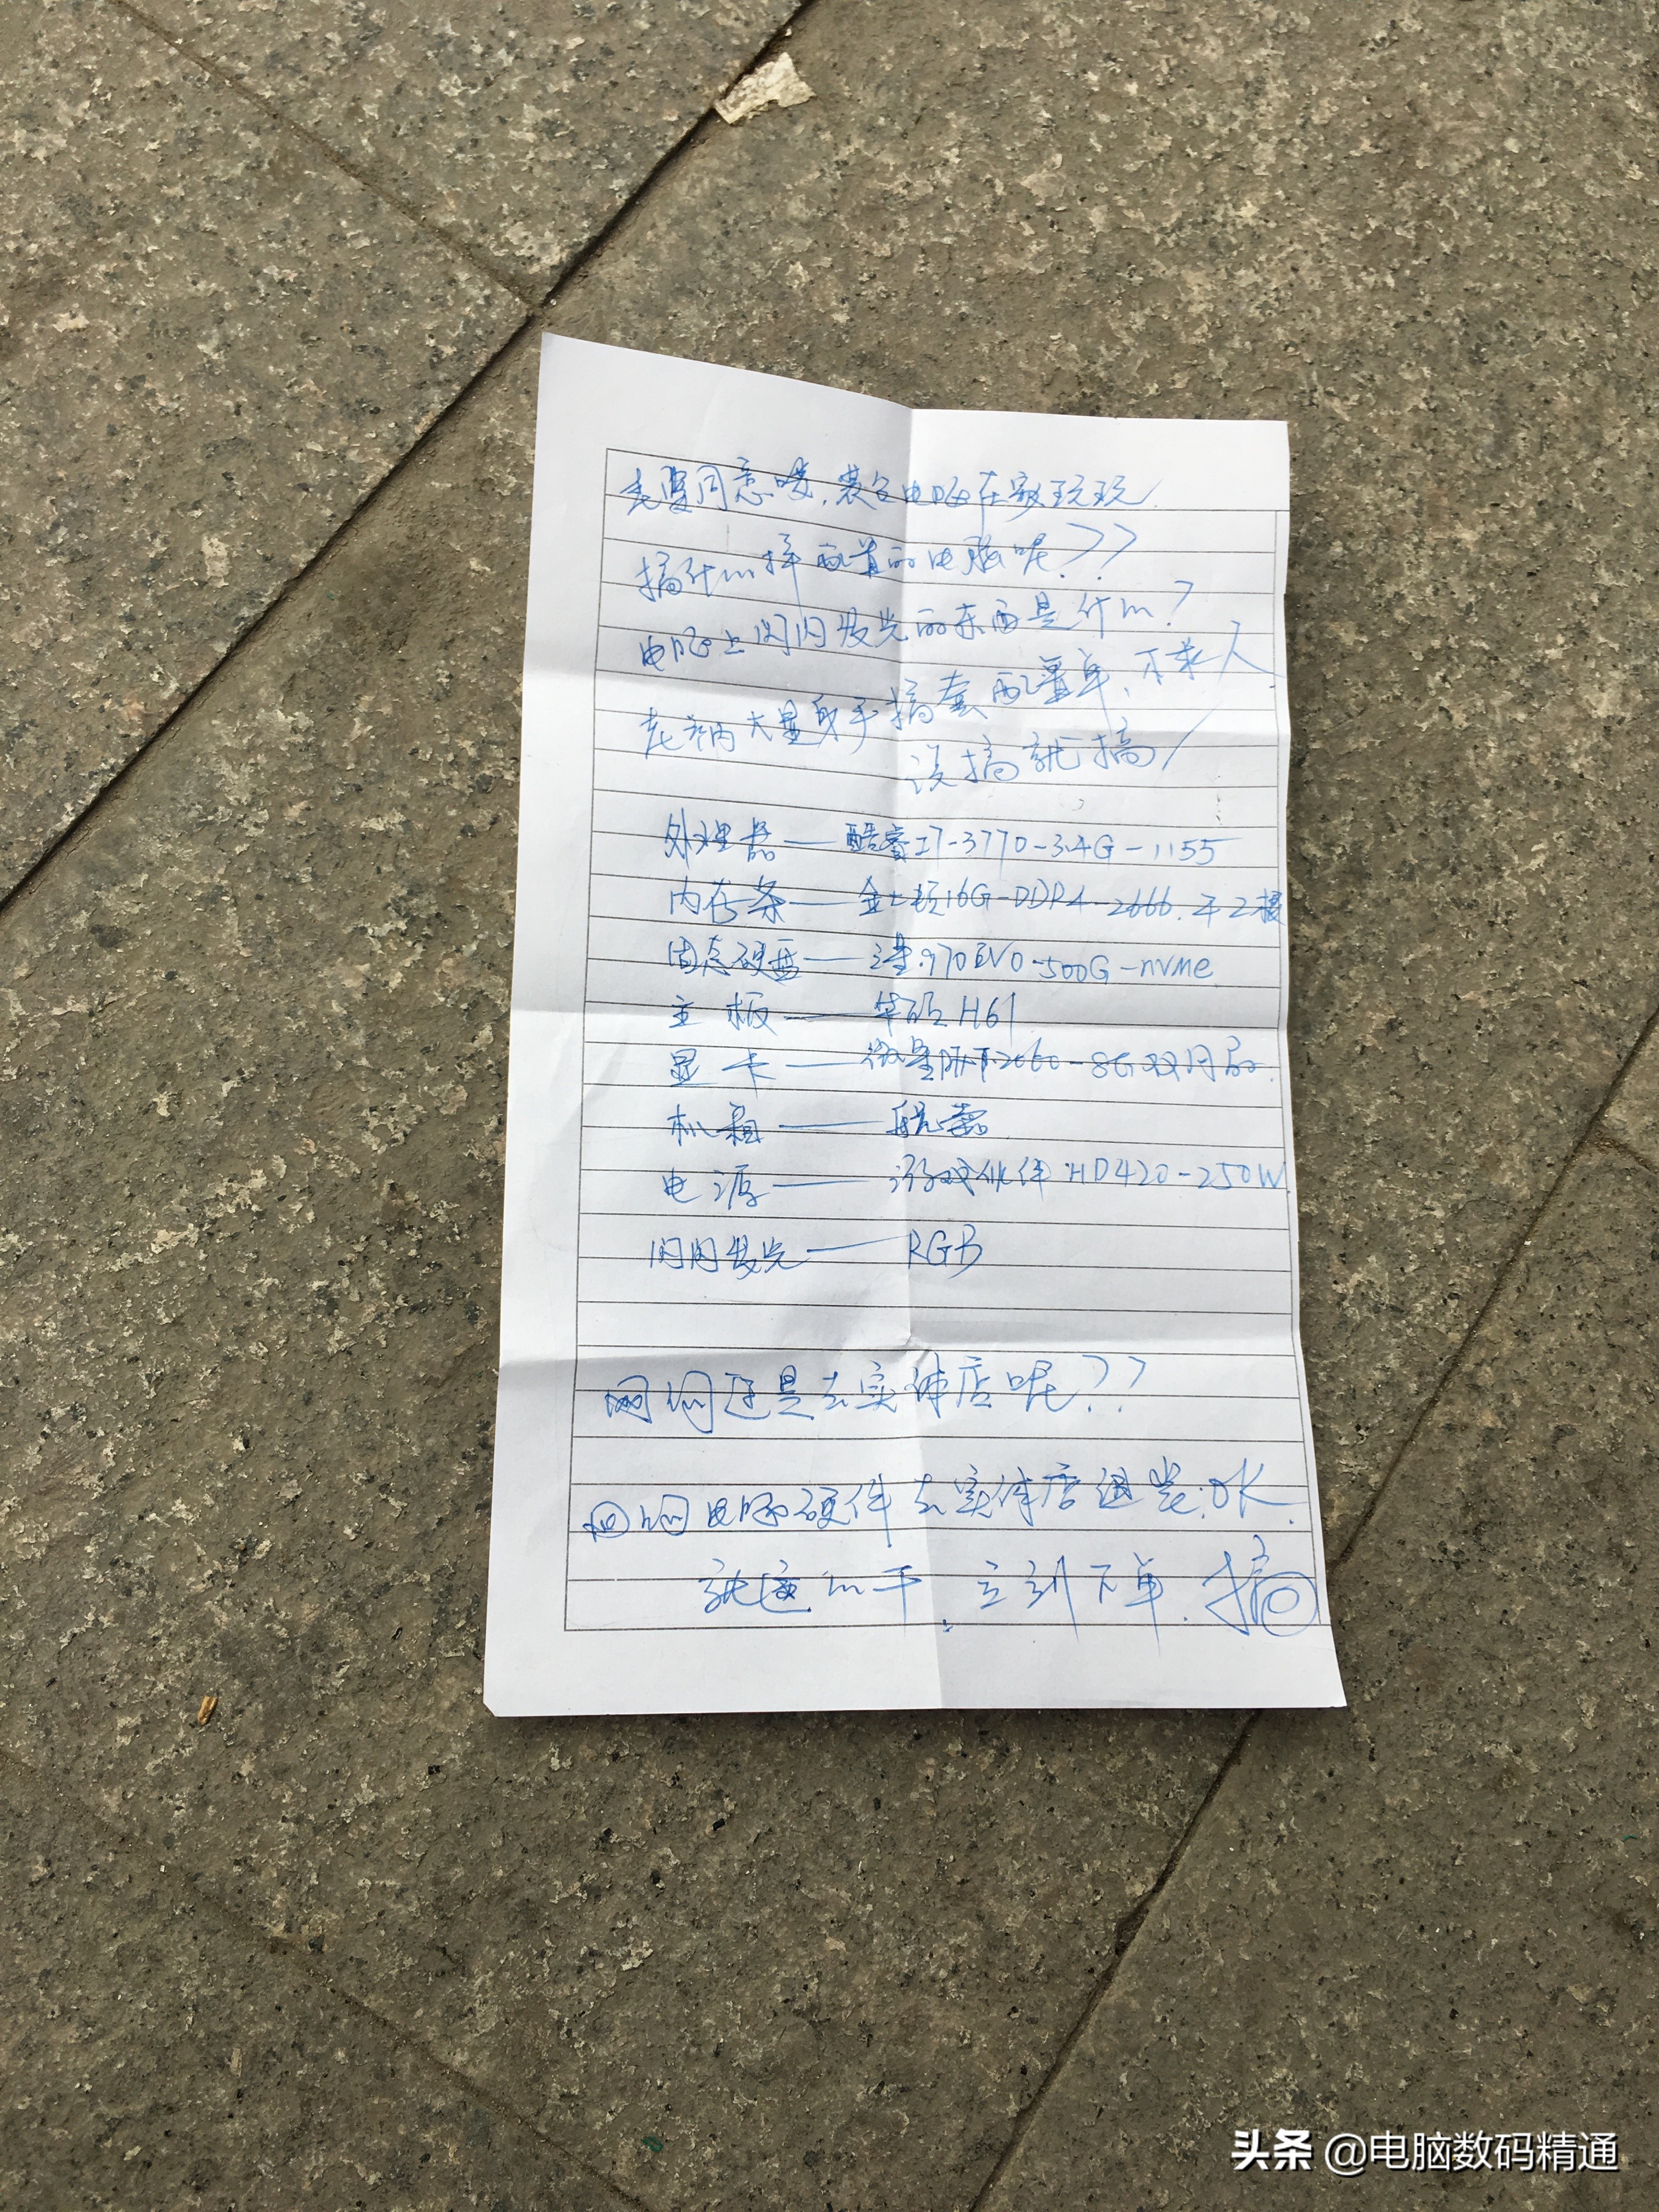 同意喽，装台电脑在家玩玩
搞什么样配置的电脑呢？？
电脑上闪闪发光的东西是什么？
大显身手搞套配置单，不求人
说搞就搞
处理器——酷睿I7-3770-3.4G-1155
内存条——金士顿16G-DDR4-2666.
固态硬盘——三星.970EVO-500G-nvme
主板——华硕H61
显卡——微星2060-8G双风扇
机箱——航嘉
电源——游戏伙伴HD420-250W
闪闪发光——RGB
网购还是去实体店呢？？
网电脑硬件去实体店组装.OK.
就这么干，立刻下单.搞
头条 @电脑数码精通